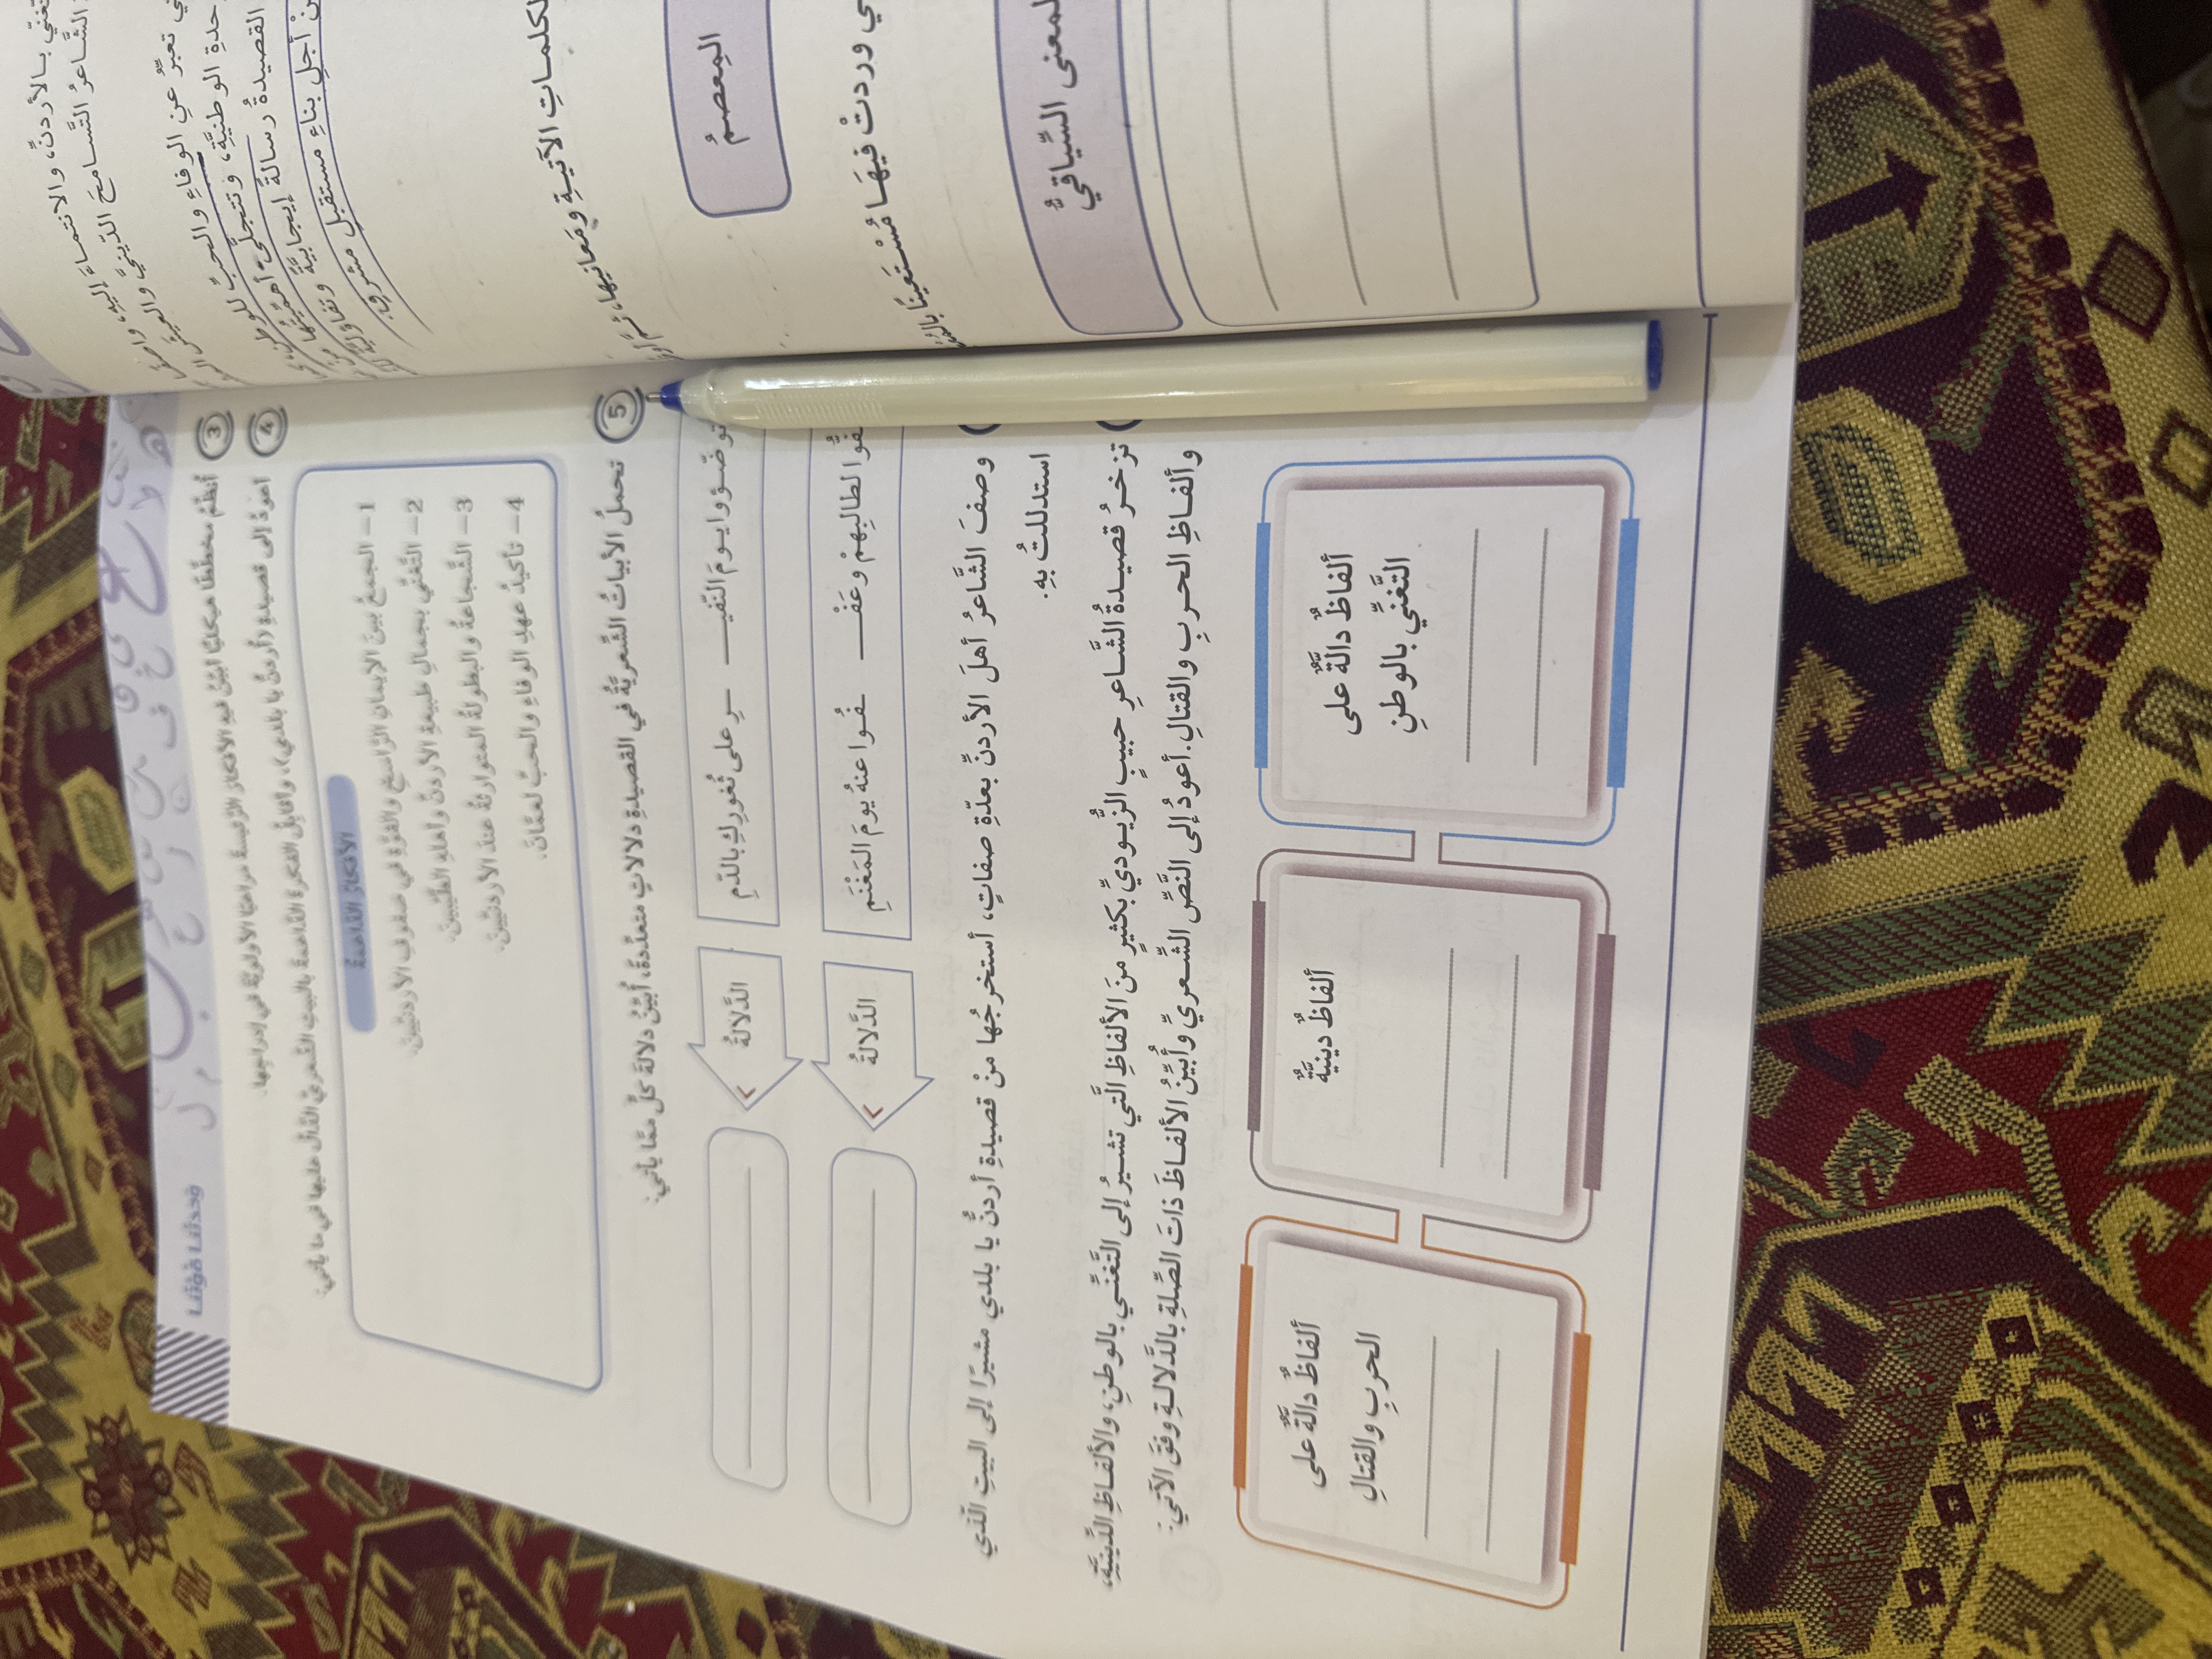 ③ أُنظِّمُ مخططًا هيكليًّا أبيّنُ فيهِ الأفكارَ الرَّئيسةَ مراعيًا الأولويَّةَ في إدراجِها.
④ أعودُ إلى قصيدةِ (أردنُّ يا بلدي)، وأقابلُ الفكرةَ الدّاعمةَ بالبيتِ الشّعريِّ الدّالِّ عليها في ما يأتي:
الأفكارُ الدّاعمةُ
1- الجمعُ بينَ الإيمانِ الرّاسخِ والقوّةِ في صفوفِ الأردنيّينَ.
2- التّغنّي بجمالِ طبيعةِ الأردنِّ وأهلهِ الطّيّبينَ.
3- الشّجاعةُ والبطولةُ المتوارثةُ عندَ الأردنيّينَ.
4- تأكيدُ عهدِ الوفاءِ والحبِّ لعمّانَ.
⑤ تحملُ الأبياتُ الشّعريّةُ في القصيدةِ دلالاتٍ متعدّدةً، أُبيّنُ دلالةَ كلٍّ ممّا يأتي:
توضّؤوا يومَ النّفيـــ ـــرِ على ثُغورِكِ بالدّمِ
الدَّلالةُ
لطالبِهِمْ وعَفْـــ ـــفُوا عنهُ يومَ المَغْنَمِ
الدَّلالةُ
وصفَ الشَّاعرُ أهلَ الأردنِّ بعدّةِ صفاتٍ، أستخرجُها منْ قصيدةِ أردنُّ يا بلدي مشيرًا إلى البيتِ الّذي
استدللتُ بهِ.
تزخرُ قصيدةُ الشَّاعرِ حبيبِ الزُّيوديِّ بكثيرٍ منَ الألفاظِ الَّتي تشيرُ إلى التَّغنّي بالوطنِ، والألفاظِ الدِّينيَّةِ،
وألفاظِ الحربِ والقتالِ. أعودُ إلى النَّصِّ الشِّعريِّ وأُبيِّنُ الألفاظَ ذاتَ الصِّلةِ بالدَّلالةِ وفقَ الآتي:
ألفاظٌ دالَّةٌ على
التَّغنِّي بالوطنِ
ألفاظٌ دينيَّةٌ
ألفاظٌ دالَّةٌ على
الحربِ والقتالِ
بالأردنِّ، والانتماءَ إليهِ،
الشَّاعرُ التَّسامحَ الدّينيَّ والعيشَ
تعبِّرُ عنِ الوفاءِ والحبِّ للوطنِ،
الوطنيَّةِ، وتتجلّى أهمّيّتُها
القصيدةُ رسالةٌ إيجابيَّةٌ
أجلِ بناءِ مستقبلٍ مشرقٍ.
الكلماتِ الآتيةِ ومَعانيها، ثمَّ
المِعصمُ
وردتْ فيهَا مُسْتَعينًا
المعنى السِّياقيُّ